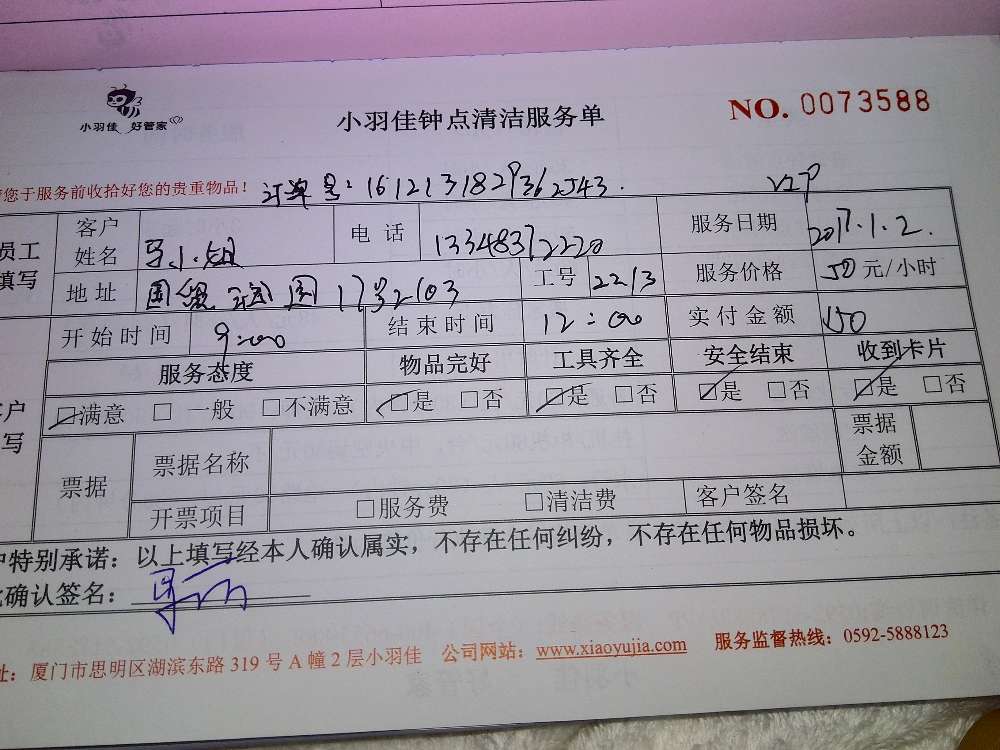 小羽佳 好管家
小羽佳钟点清洁服务单
NO. 0073588
您于服务前收拾好您的贵重物品！
订单号：1612131829362543.
VIP
员工填写
客户姓名 马小姐 电话 13348372220 服务日期 2017.1.2.
地址 国贸 园17号2103 工号 2213 服务价格 50元/小时
开始时间 9:00 结束时间 12:00 实付金额 150
服务态度 物品完好 工具齐全 安全结束 收到卡片
户写
☑满意 □一般 □不满意 ☑是 □否 ☑是 □否 ☑是 □否 ☑是 □否
票据 票据名称 票据金额
开票项目 □服务费 □清洁费 客户签名
户特别承诺：以上填写经本人确认属实，不存在任何纠纷，不存在任何物品损坏。
确认签名：
址：厦门市思明区湖滨东路319号A幢2层小羽佳 公司网站：www.xiaoyujia.com 服务监督热线：0592-5888123